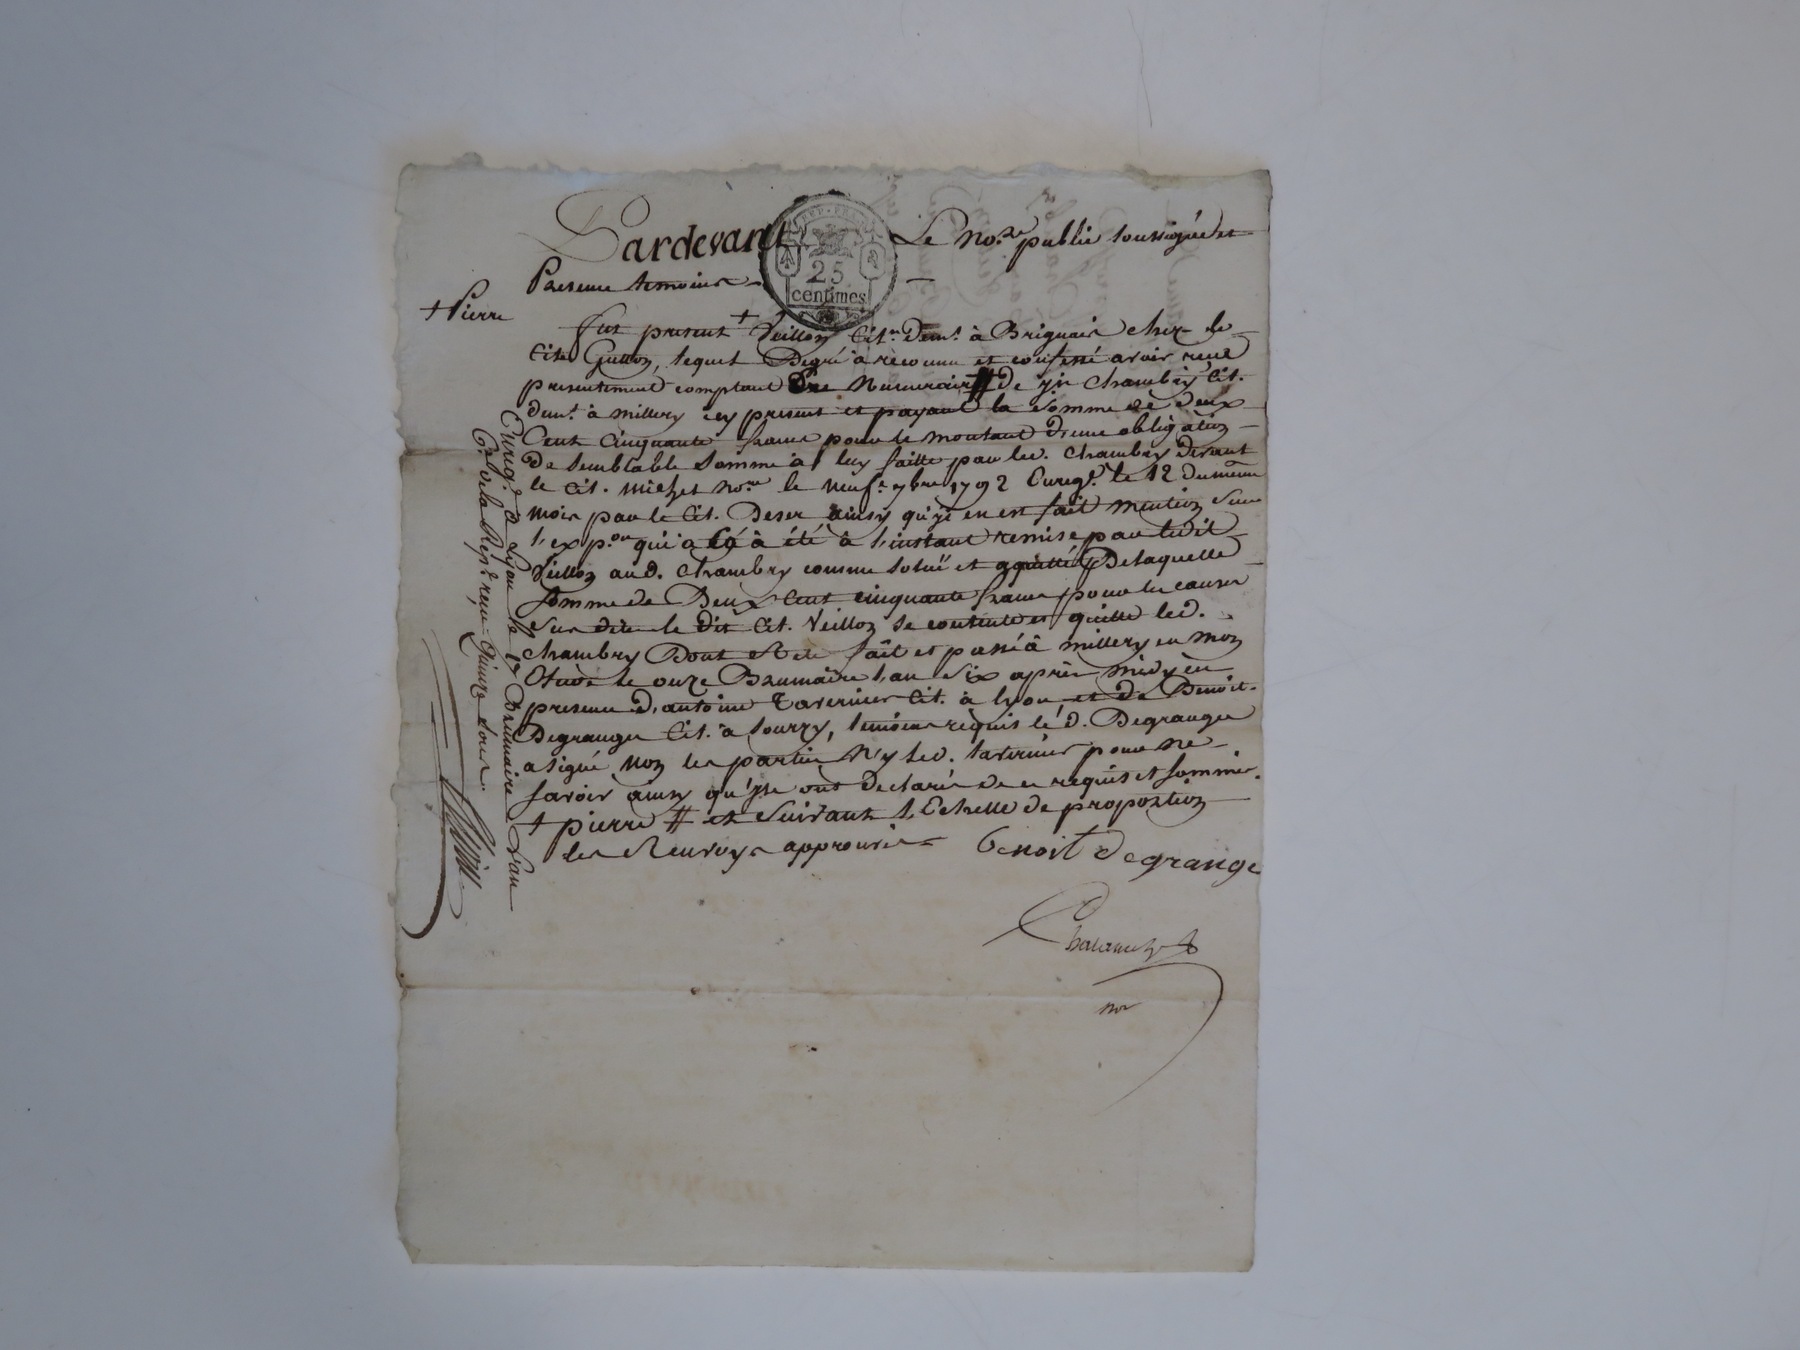 Pardevant Le no.re public soussigné et
REP. FRA.
25
centimes
Presence temoins
+ Pierre
fut present + Veillon Cit.n dem.t à Brignais chez le
Cit. Guillon, lequel Degré à reconnu et confessé avoir reçu
presentement comptant En Numeraire # de Chambry Cit.
dem.t à millery icy present et payant la somme de Deux
Cent Cinquante francs pour le montant d'une obligation
De semblable somme à luy faitte par led. Chambry devant
le Cit. michet no.re le neuf 7bre 1792 Enreg.é le 12 du même
mois par le Cit. Deser ainsy qu'il en est fait mention sur
l'exp.on qui a été à l'instant remise par ledit
Veillon aud. Chambry comme solué et acquitté Delaquelle
somme de Deux Cent cinquante francs pour les causes
sus dite le dit Cit. Veillon se contente et quitte led.
Chambry Dont Acte fait et passé à millery en mon
Etude le onze Brumaire l'an Six après midy en
presence d'antoine Tavernier Cit. à lyon et de Benoit
Degrange Cit. à sourzy, temoins requis le d. Degrange
a signé non les parties N'y led. tavernier pour ne
savoir ainsy qu'ils ont declaré de ce requis et sommés.
+ pierre # et suivant l'Echelle de proportion
les Renvoys approuvés
benoit degrange
not
Enreg.é à Lyon le 17 Brumaire l'an
6.e de la Rep.e reçu quinze sous